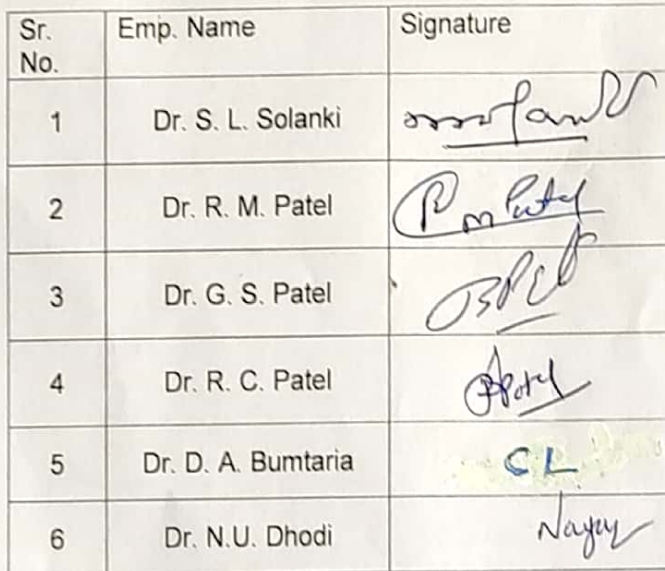 Sr. No. Emp. Name Signature
1 Dr. S. L. Solanki
2 Dr. R. M. Patel R M Patel
3 Dr. G. S. Patel
4 Dr. R. C. Patel
5 Dr. D. A. Bumtaria CL
6 Dr. N.U. Dhodi